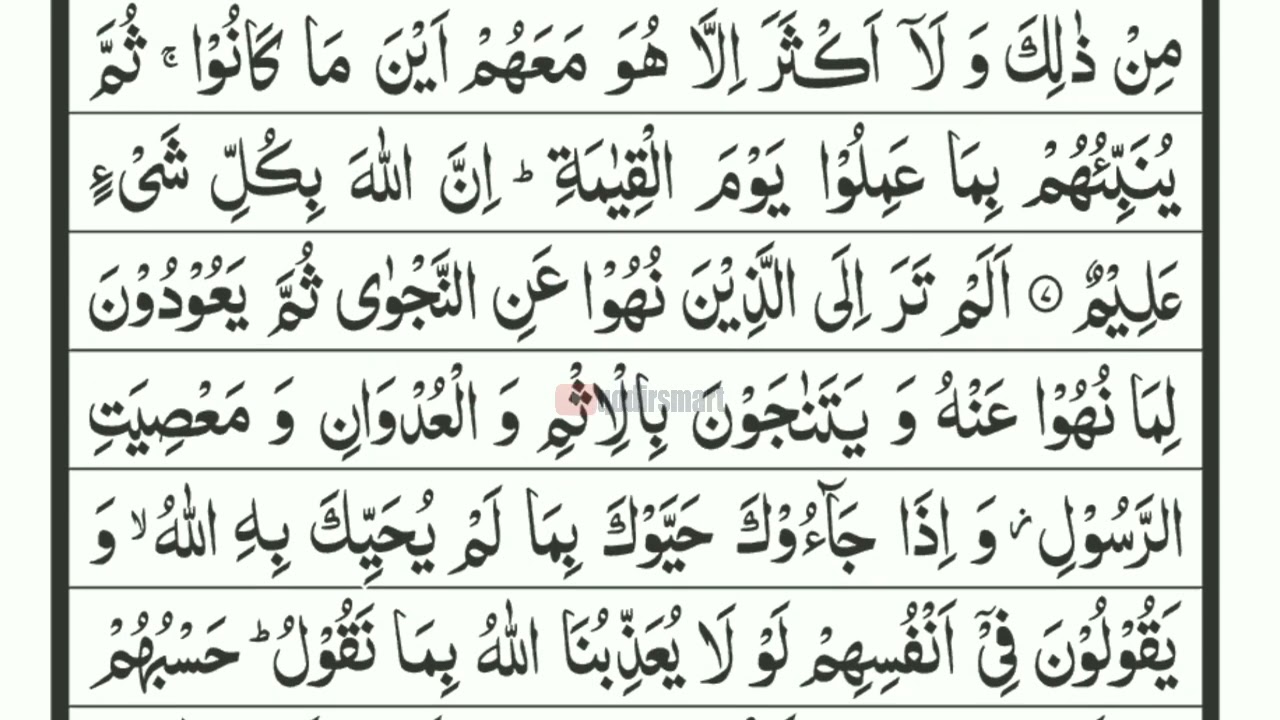 مِنْ ذٰلِكَ وَ لَاۤ اَكْثَرَ اِلَّا هُوَ مَعَهُمْ اَیْنَ مَا كَانُوْا ۚ ثُمَّ
یُنَبِّئُهُمْ بِمَا عَمِلُوْا یَوْمَ الْقِیٰمَةِ ؕ اِنَّ اللّٰهَ بِكُلِّ شَیْءٍ
عَلِیْمٌ ۝۷ اَلَمْ تَرَ اِلَی الَّذِیْنَ نُهُوْا عَنِ النَّجْوٰی ثُمَّ یَعُوْدُوْنَ
لِمَا نُهُوْا عَنْهُ وَ یَتَنٰجَوْنَ بِالْاِثْمِ وَ الْعُدْوَانِ وَ مَعْصِیَتِ
qodirsmart
الرَّسُوْلِ ؗ وَ اِذَا جَآءُوْكَ حَیَّوْكَ بِمَا لَمْ یُحَیِّكَ بِهِ اللّٰهُ ۙ وَ
یَقُوْلُوْنَ فِیْۤ اَنْفُسِهِمْ لَوْ لَا یُعَذِّبُنَا اللّٰهُ بِمَا نَقُوْلُ ؕ حَسْبُهُمْ